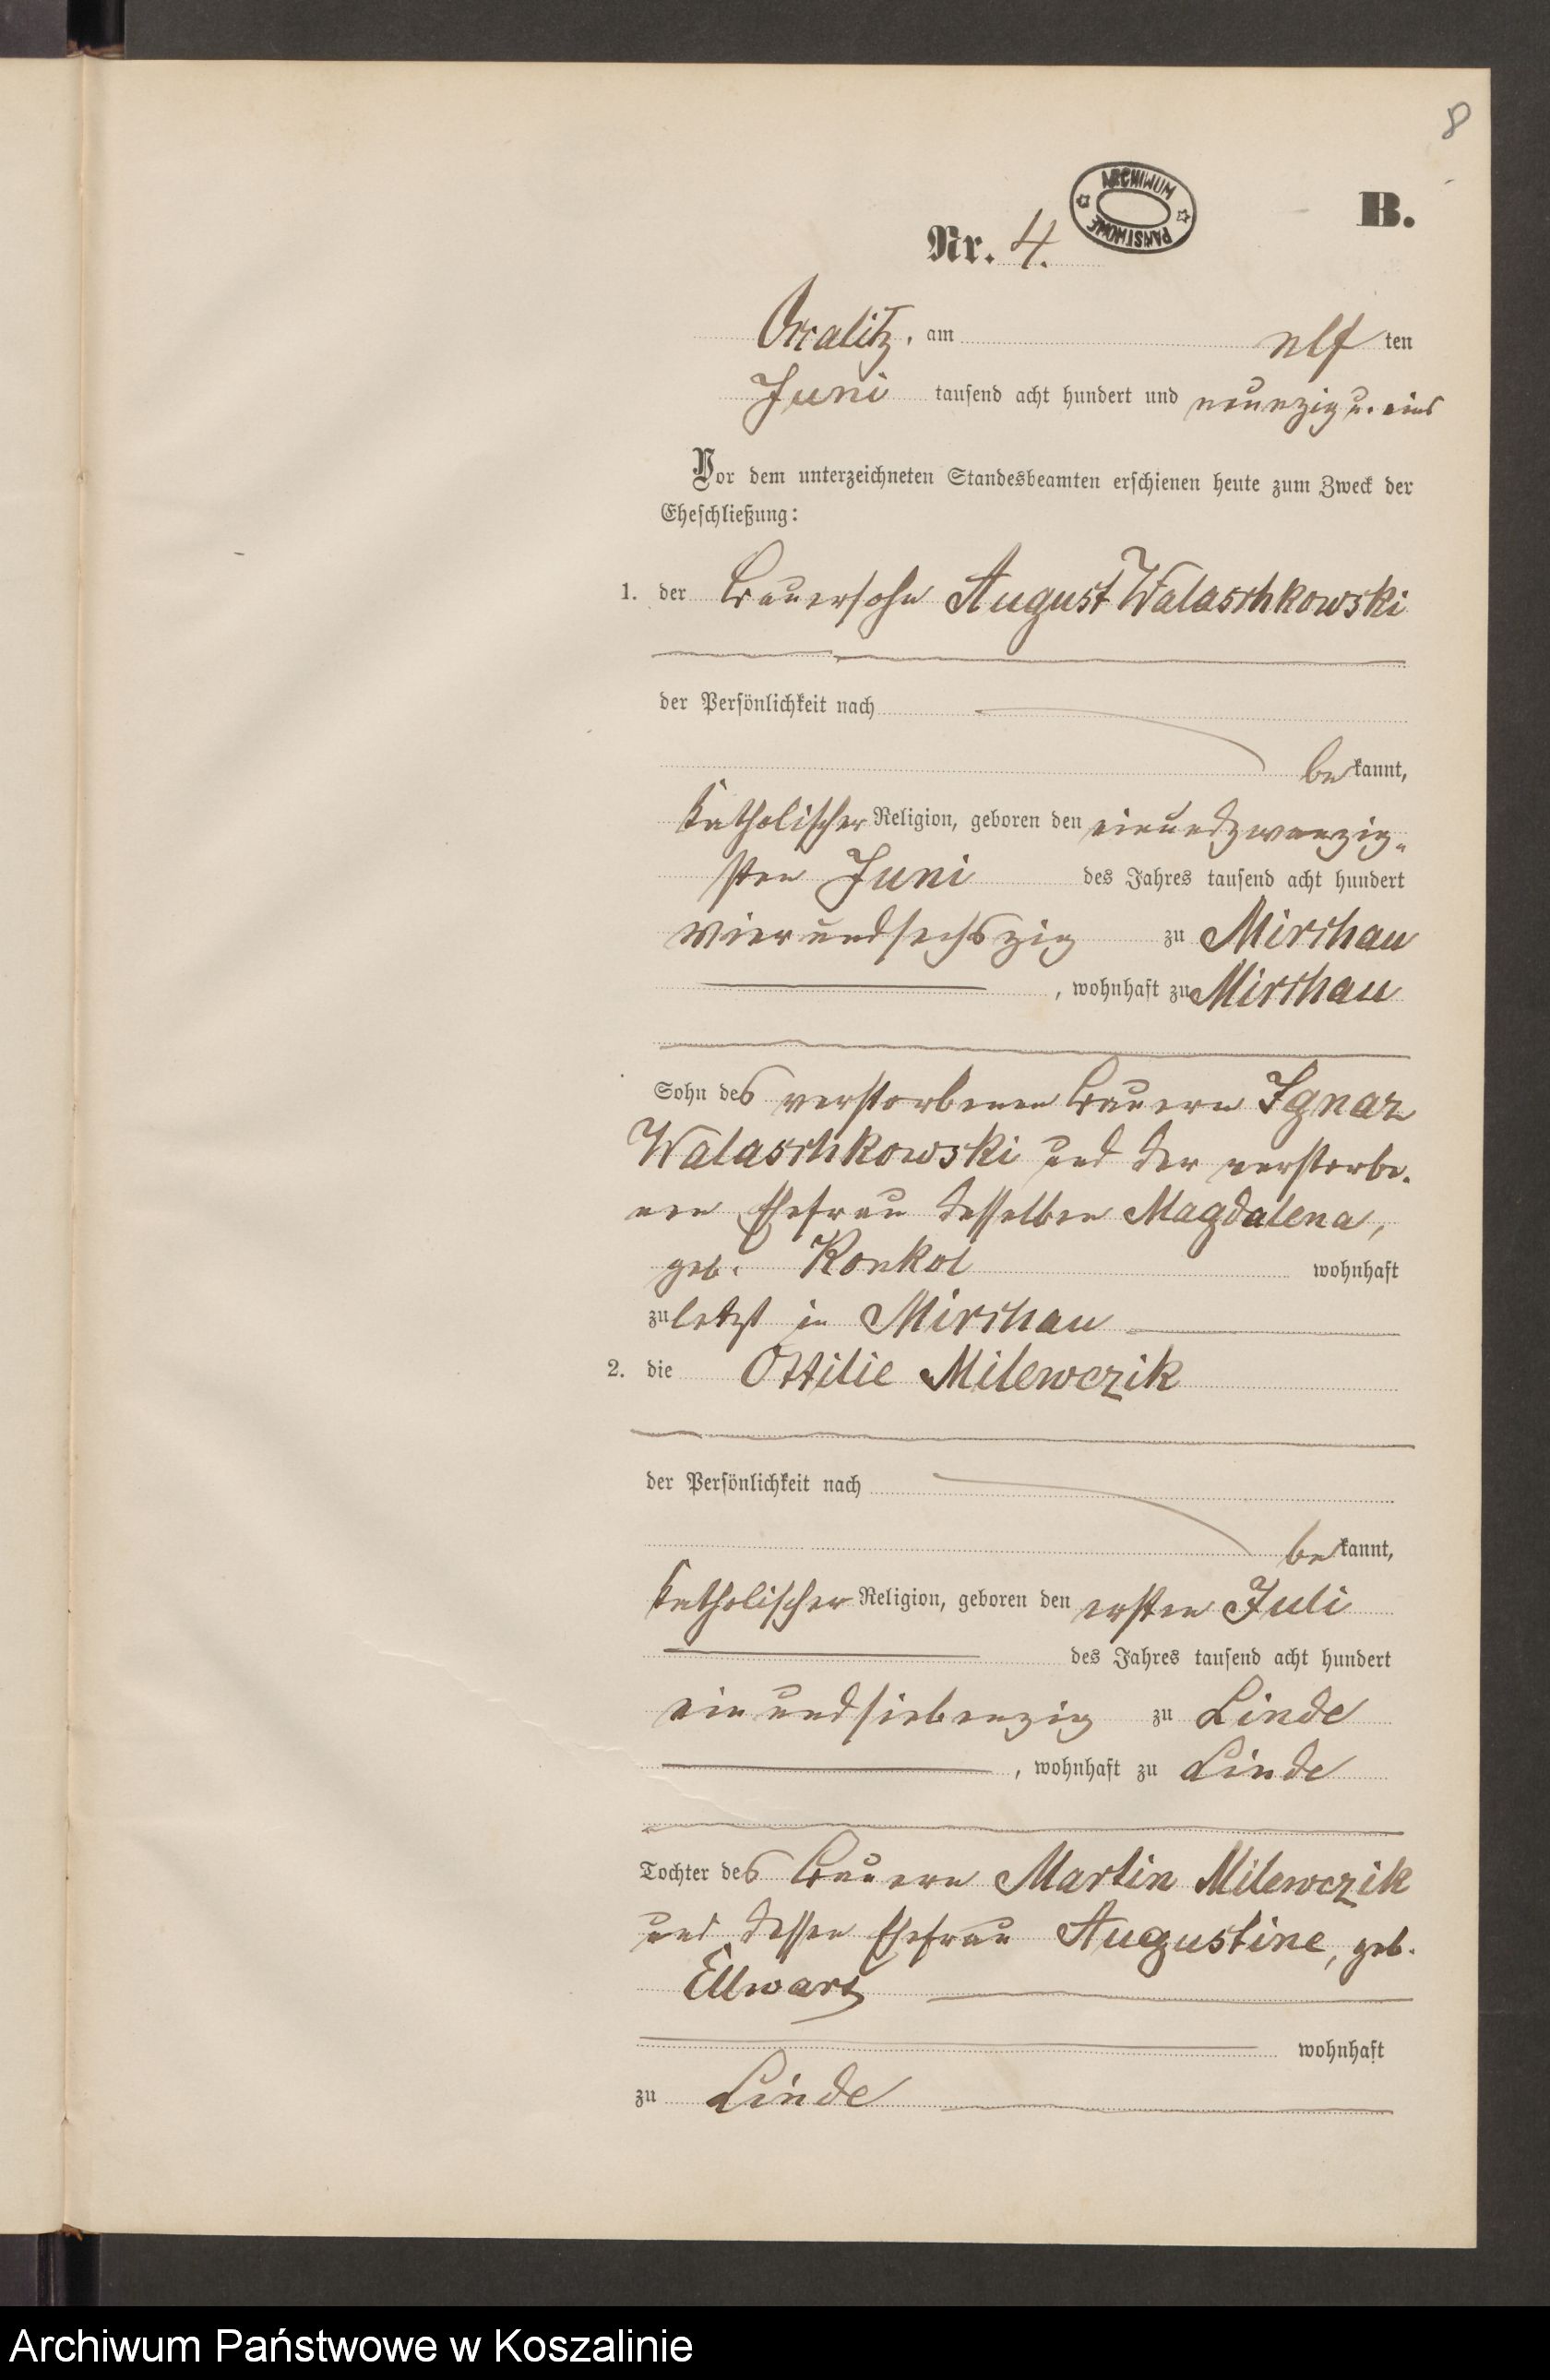 8
B.
ARCHIWUM PAŃSTWOWE
Nr. 4.
am elf ten
Juni tausend acht hundert und neunzig u. eins
Vor dem unterzeichneten Standesbeamten erschienen heute zum Zweck der
Eheschließung:
1. der Bauersohn August Walaschkowski
der Persönlichkeit nach
bekannt,
katholischer Religion, geboren den einundzwanzig-
sten Juni des Jahres tausend acht hundert
vierundsechszig zu Mirchau
, wohnhaft zu Mirchau
Sohn des verstorbenen Bauern Ignaz
Walaschkowski und der verstorbe-
nen Ehefrau desselben Magdalena,
geb. Konkol wohnhaft
zuletzt in Mirchau
2. die Ottilie Milewczik
der Persönlichkeit nach
bekannt,
katholischer Religion, geboren den ersten Juli
des Jahres tausend acht hundert
einundsiebenzig zu Linde
, wohnhaft zu Linde
Tochter des Bauern Martin Milewczik
und dessen Ehefrau Augustine, geb.
Ellwart
wohnhaft
zu Linde
Archiwum Państwowe w Koszalinie